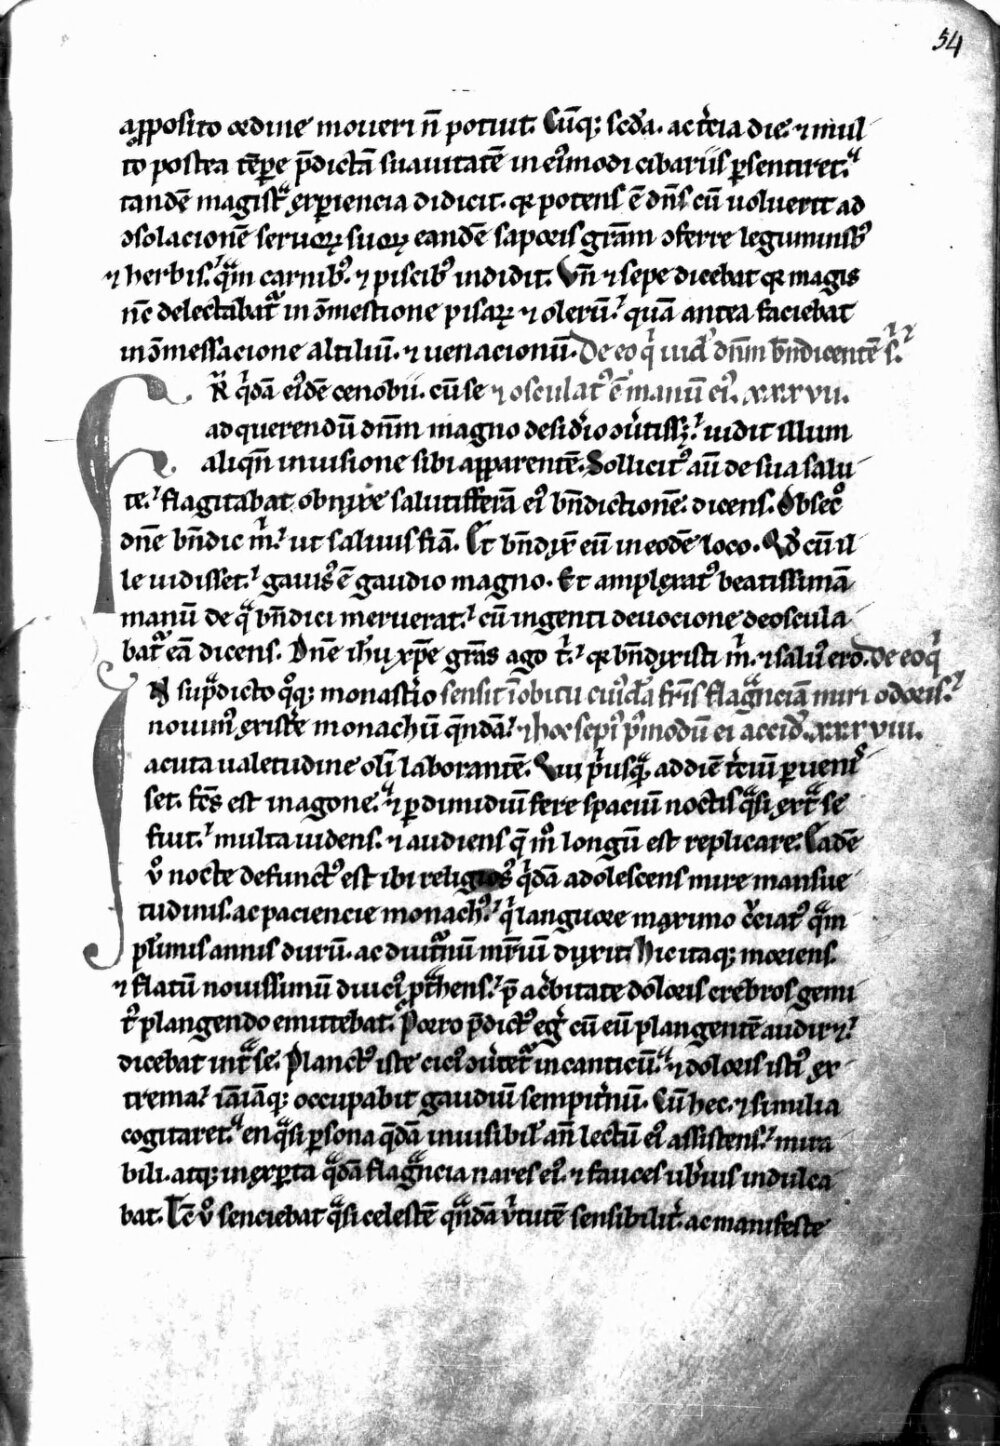 54
apposito ordine moueri n̄ potuit. Cūq; scd̄a. ac t'cia die. ⁊ mul
to postea tēpe p̄dictā suauitatē in eiꝰmodi cibariis psentiret.
tandē magistᵃ exꝑiencia didicit. qr potens ē dn̄s cū uoluerit ad
ↄsolacionē seruoꝝ suoꝝ eandē saporis grām ↄferre leguminibꝫ
⁊ herbis. qᵃm carnibꝫ. ⁊ piscibꝫ indidit. Vn̄ ⁊ sepe dicebat qr magis
nc̄ delectabatᵃ in ↄmestione pisaꝝ ⁊ olerū. quā antea faciebat
in ↄmessacione altiliū. ⁊ uenacionū. De eo qⁱ uid' dn̄m bn̄dicentē s.
R̄ qⁱdā eiꝰdē cenobii. cū se ⁊ osculatꝰ ē manū eiꝰ. xxxvii.
ad querendū dn̄m magno desid'io ↄu'tissꝫ. uidit illum
aliqn̄ in uisione sibi apparentē. Sollicitꝰ aū de sua salu
te. flagitabat obnixe salutifferā eiꝰ bn̄dictionē. dicens. Obsecᵒ
dn̄e bn̄dic mⁱ. ut saluus fiā. Et bn̄dix̄ eū in eodē loco. Qd̄ cū il
le uidisset. gauisꝰ ē gaudio magno. Et amplexatꝰ beatissimā
manū de qᵃ bn̄dici meruerat. cū ingenti deuocione deoscula
batᵃ eā dicens. Dn̄e ih̄u xp̄e grās ago tⁱ. qr bn̄dixisti mⁱ. ⁊ saluꝰ ero. De eo qⁱ
N supᵃdicto qᵒq; monast'io sensit ī obitu cuiꝰdā fr̄is flagᵃnciā miri odoris.
nouimꝰ existe monachū qn̄dā. ⁊ hoc sepiꝰ p̄modū ei accid'. xxxviii.
acuta ualetudine oli laborantē. Qui pⁱusqᵃ ad diē t'ciū ꝑueniſ
set. fcs̄ est in agone. ⁊ ꝑ dimidiū fere spaciū noctis qᵃsi extᵃ se
fuit. multa uidens. ⁊ audiens q̄ mᵒ longū est replicare. Eadē
ꝟᵒ nocte defunctꝰ est ibi religiosꝰ qⁱdā adolescens mire mansue
tudinis. ac paciencie monachꝰ. qⁱ languore maximo c'ciatꝰ qᵃm
pl'imis annis durū. ac diutᵃnū mr̄iū dux̄it. Hic itaq; moriens.
⁊ flatū nouissimū diuciꝰ ptᵃhens. p̄ ac'bitate doloris crebros gemi
tꝰ plangendo emittebat. Porro p̄dictꝰ eg' cū eū plangentē audir⁊.
dicebat intᵃ se. Planctꝰ iste ciciꝰ ↄu'tetᵃ in canticū. ⁊ doloris istiꝰ ex
trema. iā iāq; occupabit gaudiū sempit'nū. Cū hec. ⁊ similia
cogitaret. en qᵃsi ꝑsona qᵃdā inuisibil' an̄ lectū eiꝰ assistens. mira
bili. atq; inexꝑta qᵃdā flagᵃncia nares eiꝰ. ⁊ fauces ub'ius indulca
bat. Ic̄ ꝟᵒ senciebat qᵃsi celestē qn̄dā v'tutē sensibilit'. ac manifeste